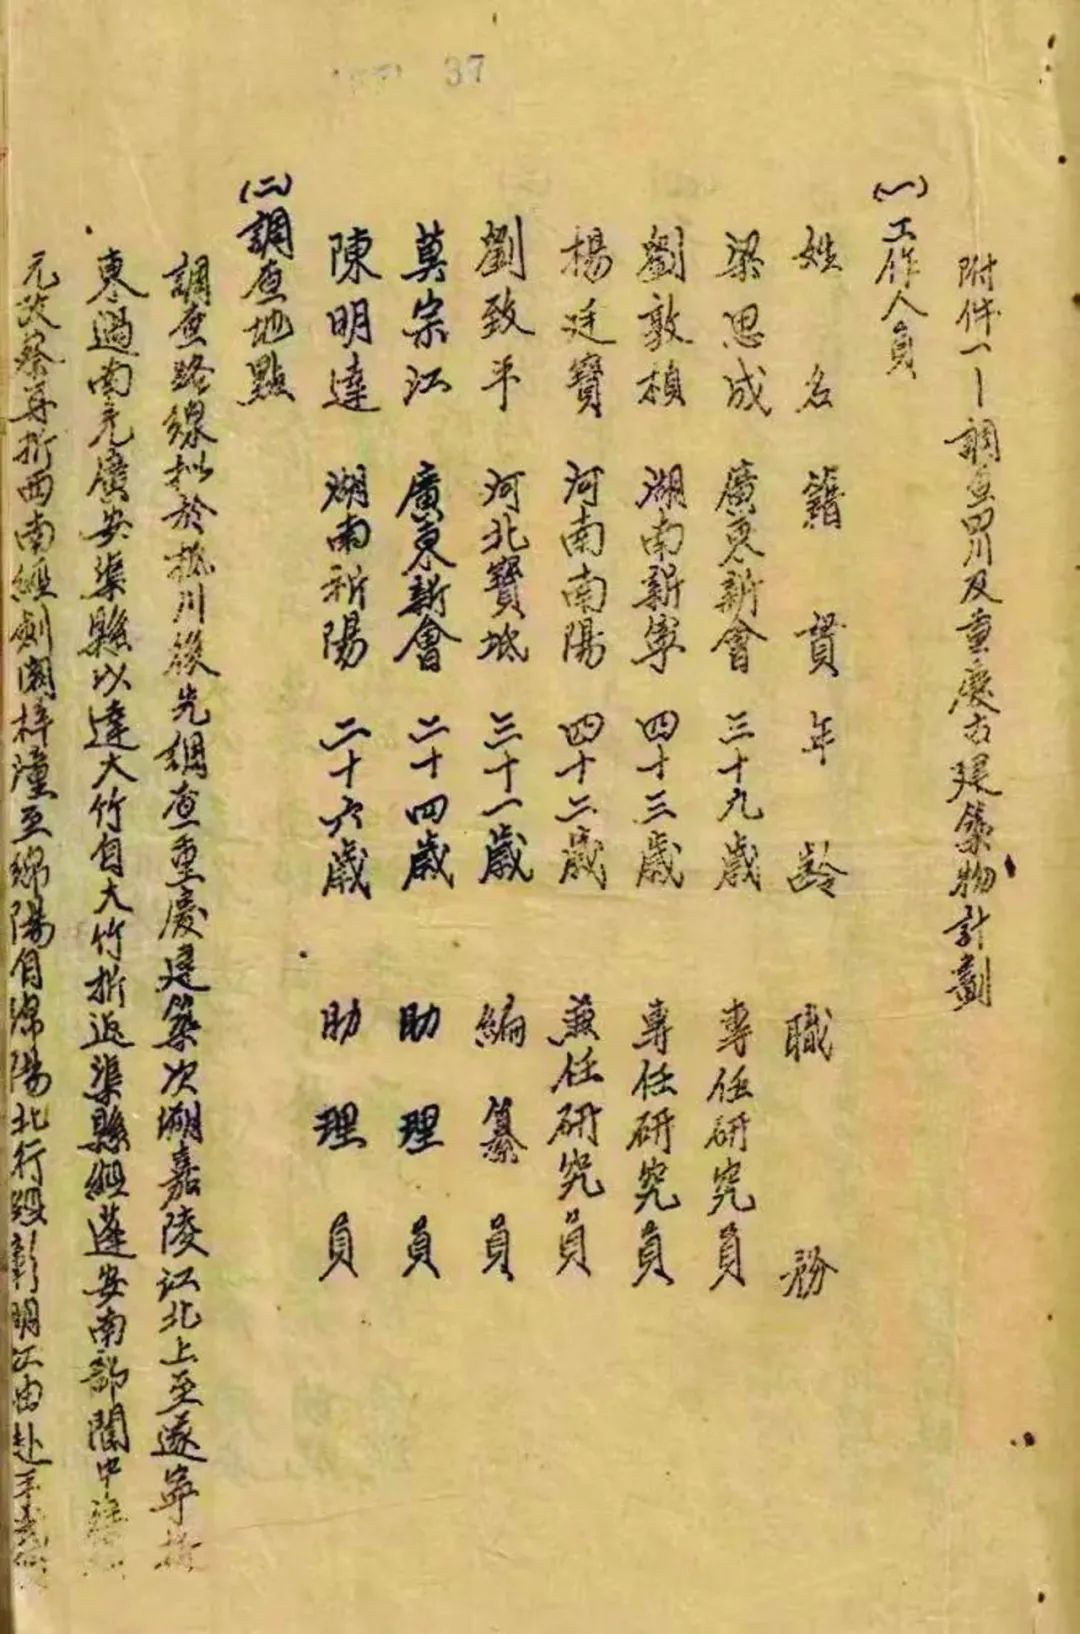 37
附件一—調查四川及重慶古建築物計劃
(一)工作人員
姓名 籍貫 年齡 職務
梁思成 廣東新會 三十九歲 專任研究員
劉敦楨 湖南新寧 四十三歲 專任研究員
楊廷寶 河南南陽 四十二歲 兼任研究員
劉致平 河北寶坻 三十一歲 編纂員
莫宗江 廣東新會 二十四歲 助理員
陳明達 湖南祈陽 二十六歲 助理員
(二)調查地點
調查路線擬於抵川後先調查重慶建築次溯嘉陵江北上至遂寧折
東過南充廣安渠縣以達大竹自大竹折返渠縣經蓬安南部閬中
元次察再折西南經劍閣梓潼至綿陽自綿陽北行經彰明江由赴平武